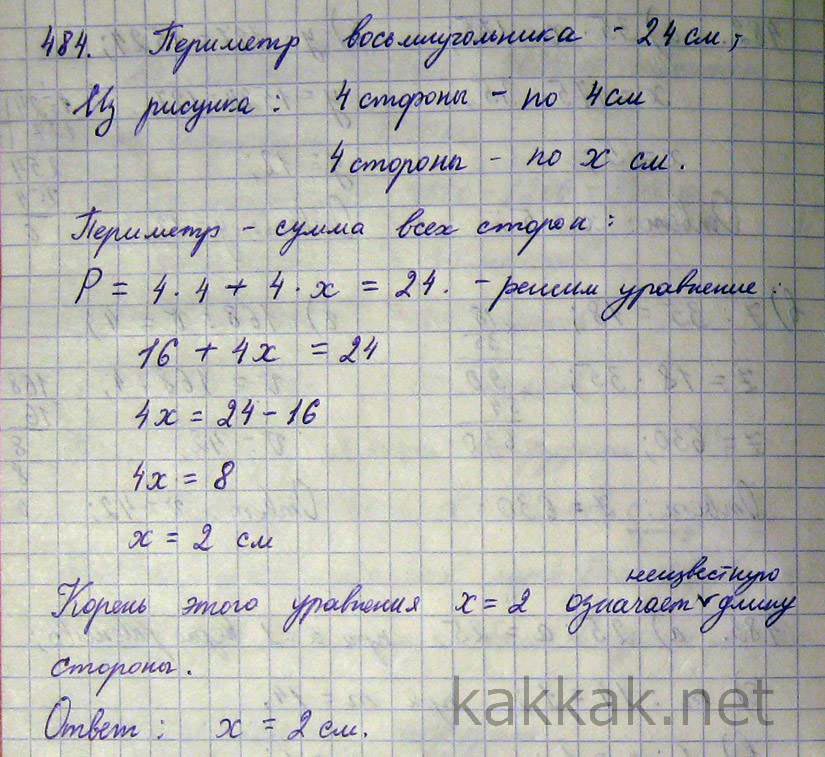 484. Периметр восьмиугольника - 24 см;
Из рисунка: 4 стороны - по 4 см
4 стороны - по x см.
Периметр - сумма всех сторон:
P = 4·4 + 4·x = 24. - решим уравнение:
16 + 4x = 24
4x = 24 - 16
4x = 8
x = 2 см
неизвестную
Корень этого уравнения x = 2 означает длину
стороны.
Ответ: x = 2 см.
kakkak.net